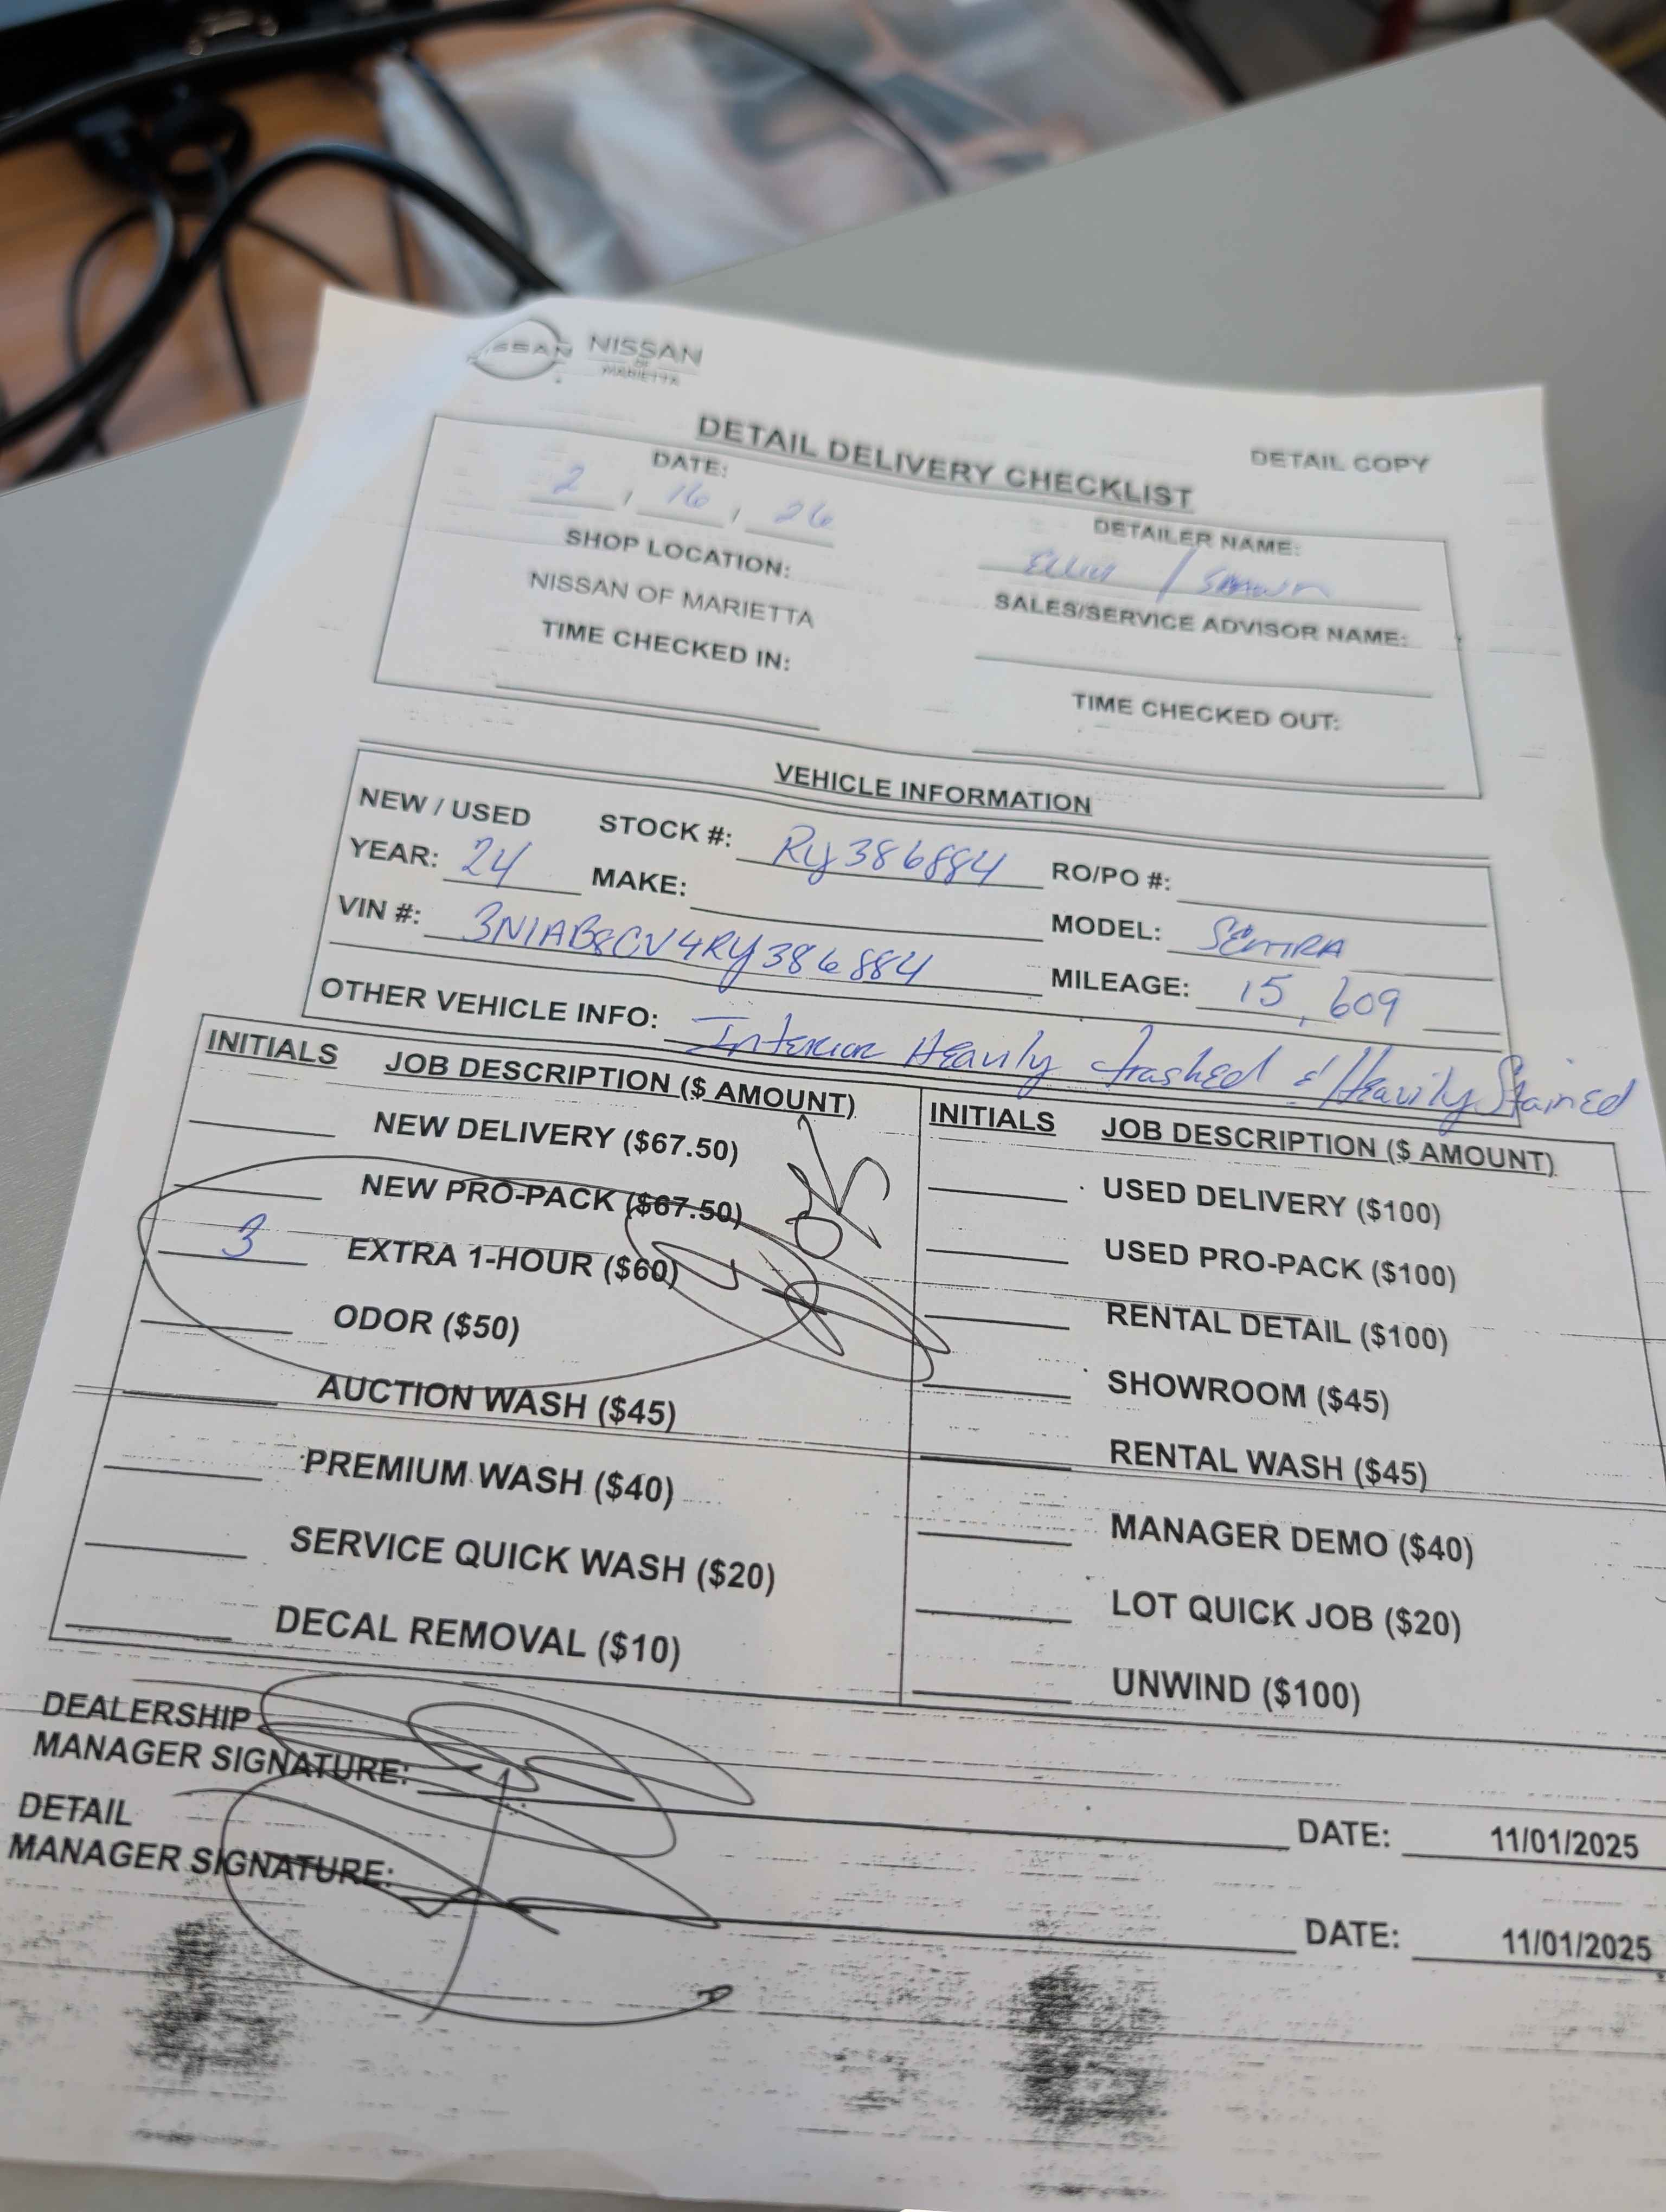 NISSAN NISSAN
OF
MARIETTA
DETAIL DELIVERY CHECKLIST
DETAIL COPY
DATE:
2 / 16 / 26
DETAILER NAME:
Elliot / Shawn
SHOP LOCATION:
NISSAN OF MARIETTA
SALES/SERVICE ADVISOR NAME:
TIME CHECKED IN:
TIME CHECKED OUT:
VEHICLE INFORMATION
NEW / USED STOCK #: Ry386884 RO/PO #:
YEAR: 24 MAKE: MODEL: SENTRA
VIN #: 3N1AB8CV4Ry386884 MILEAGE: 15,609
OTHER VEHICLE INFO: Interior Heavily trashed & Heavily Stained
INITIALS JOB DESCRIPTION ($ AMOUNT)
NEW DELIVERY ($67.50)
NEW PRO-PACK ($67.50)
3 EXTRA 1-HOUR ($60)
OK
ODOR ($50)
AUCTION WASH ($45)
PREMIUM WASH ($40)
SERVICE QUICK WASH ($20)
DECAL REMOVAL ($10)
INITIALS JOB DESCRIPTION ($ AMOUNT)
USED DELIVERY ($100)
USED PRO-PACK ($100)
RENTAL DETAIL ($100)
SHOWROOM ($45)
RENTAL WASH ($45)
MANAGER DEMO ($40)
LOT QUICK JOB ($20)
UNWIND ($100)
DEALERSHIP
MANAGER SIGNATURE: DATE: 11/01/2025
DETAIL
MANAGER SIGNATURE: DATE: 11/01/2025